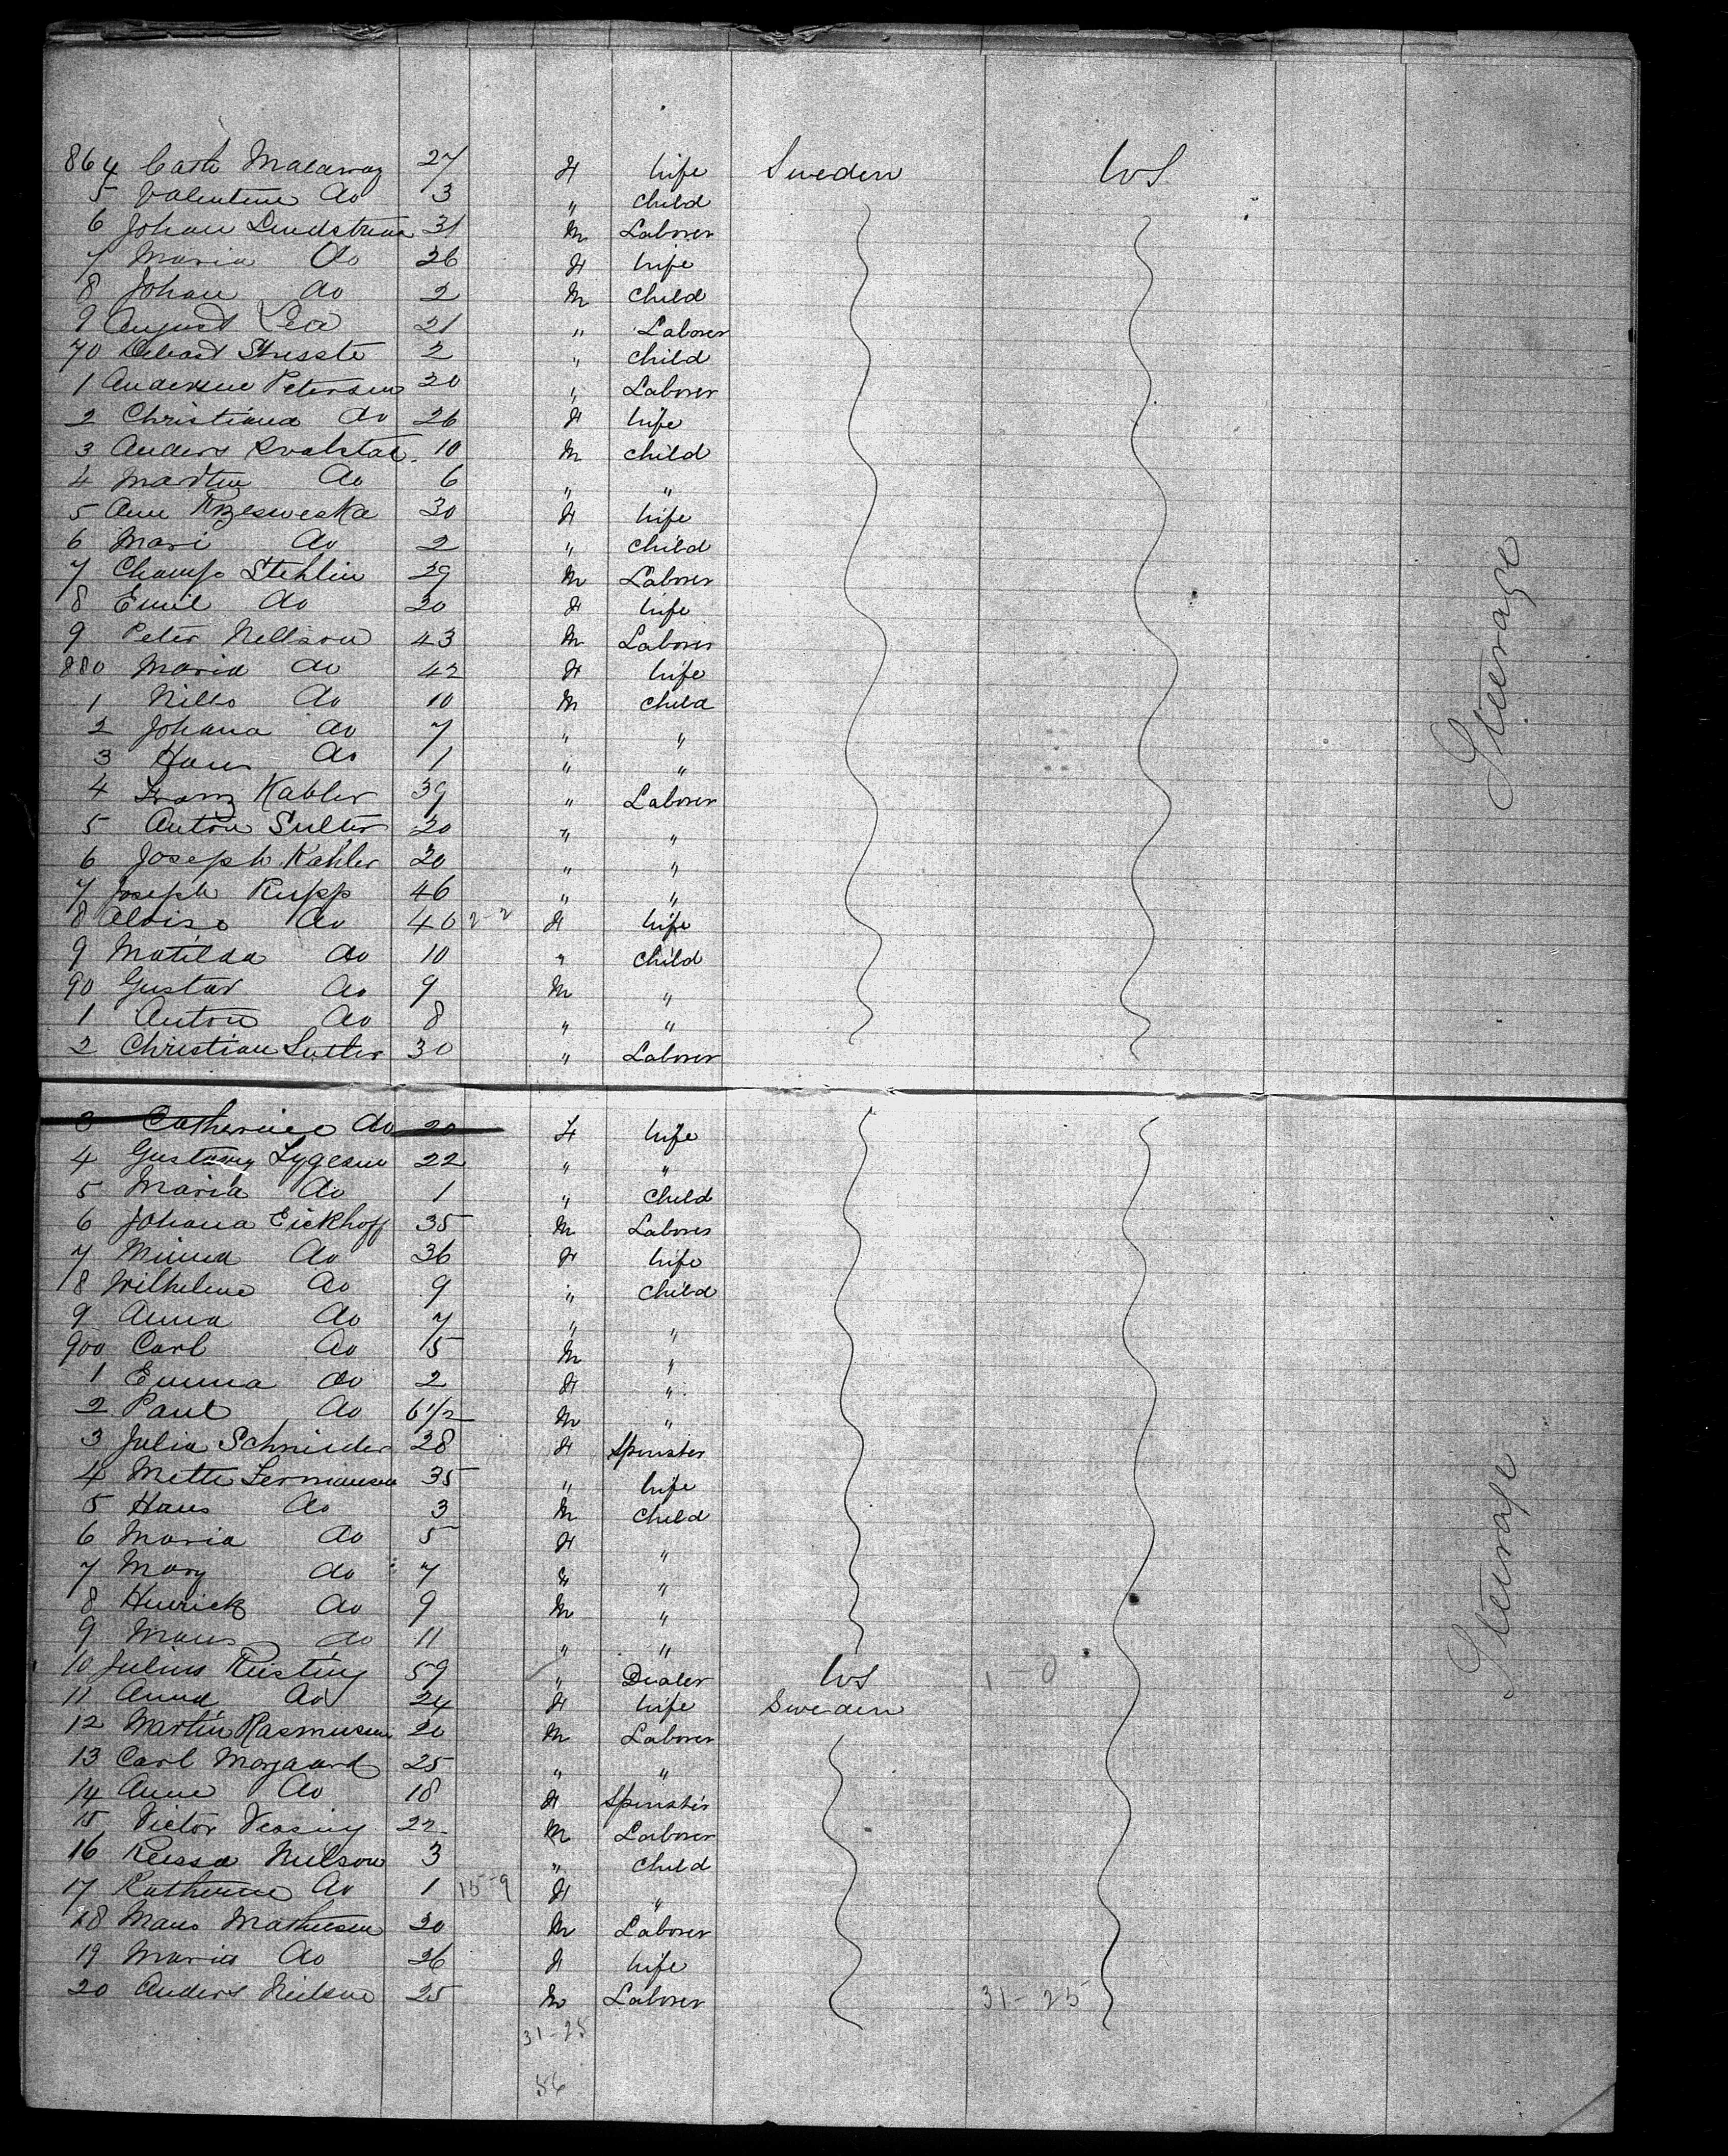 864 Cath Malaway 27 F Wife Sweden US
5 Valentine do 3 " Child
6 Johan Lindstrom 31 M Laborer
7 Maria do 26 F Wife
8 Johan do 2 M Child
9 August 21 " Laborer
70 2 " Child
1 Petersen 20 " Laborer
2 Christiana do 26 F Wife
3 Anders 10 M Child
4 Martin do 6 " "
5 Ann Krzesweska 30 F Wife
6 Mari do 2 " Child
7 Stehlin 29 M Laborer
8 Emil do 20 F Wife
9 Peter Nellson 43 M Laborer
880 Maria do 42 F Wife
1 Nills do 10 M Child
2 Johana do 7 " "
3 Hans do 1 " "
4 Franz Kahler 39 " Laborer
5 Anton Sulter 20 " "
6 Joseph Kahler 20 " "
7 Joseph Rupp 46 " "
8 Aloise do 40 2-2 F Wife
9 Matilda do 10 " Child
90 Gustav do 9 M "
1 Anton do 8 " "
2 Christian Sutter 30 " Laborer
Steerage
3 Catherine do 20 F Wife
4 22 " "
5 Maria do 1 " Child
6 Johana Eickhoff 35 M Laborer
7 Minna do 36 F Wife
8 Wilhelme do 9 " Child
9 Anna do 7 " "
900 Carl do 15 M "
1 Emma do 2 F "
2 Paul do 6 1/2 M "
3 Julia Schnieder 28 F Spinster
4 Mette 35 " Wife
5 Hans do 3 M Child
6 Maria do 5 F "
7 Mary do 7 F "
8 Hinrick do 9 M "
9 Mans do 11 " "
10 Julius 59 " Dealer US 1-0
11 Anna do 24 F Wife Sweden
12 Martin Rasmusen 20 M Laborer
13 Carl Morgaard 25 " "
14 Anne do 18 F Spinster
15 Victor 22 M Laborer
16 Nielson 3 " Child
17 Katherine do 1 15-9 F "
18 Mans Mathiesen 20 M Laborer
19 Maria do 26 F Wife
20 Anders Neilson 25 M Laborer 31-25
31-25
56
Steerage